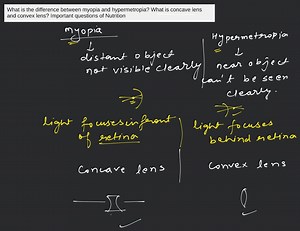 What is the difference between myopia and hypermetropia? What is concave lens
and convex lens? Important questions of Nutrition
myopia
distant object
not visible clearly
light focuses infront
of retina
Concave lens
Hypermetropia
near object
can't be seen
clearly.
light focuses
behind retina
Convex lens